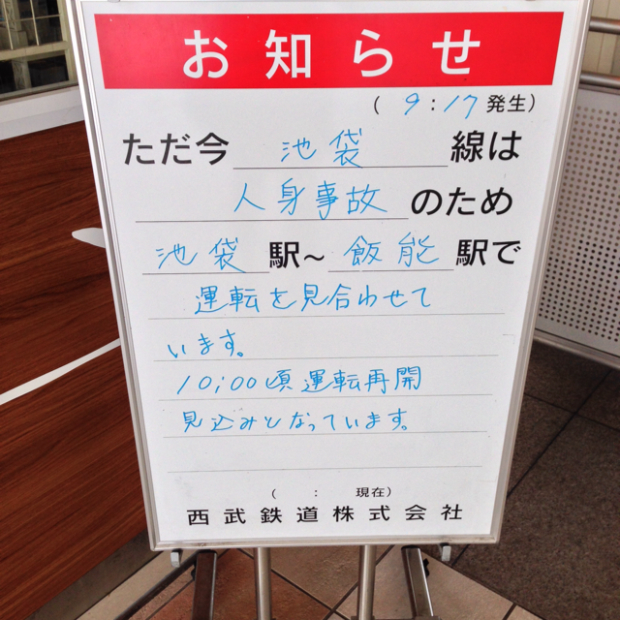 お知らせ
(9:17発生)
ただ今 池袋 線は
人身事故 のため
池袋 駅～ 飯能 駅で
運転を見合わせて
います。
10:00頃運転再開
見込みとなっています。
( : 現在)
西武鉄道株式会社